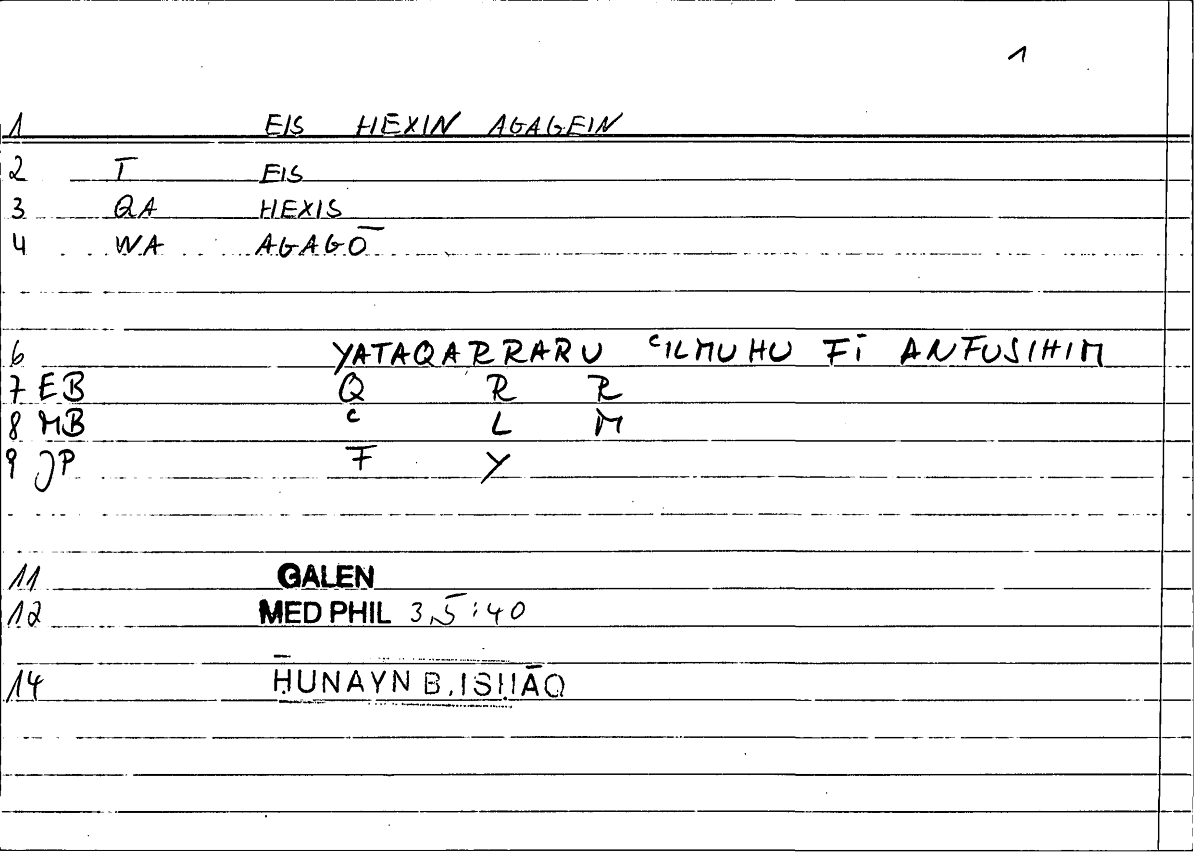 1
1 EIS HEXIN AGAGEIN
2 T EIS
3 QA HEXIS
4 WA AGAGŌ
6 YATAQARRARU ᶜILMUHU FĪ ANFUSIHIM
7 EB Q R R
8 MB ᶜ L M
9 JP F Y
11 GALEN
12 MED PHIL 3,5:40
14 ḤUNAYN B. ISḤĀQ